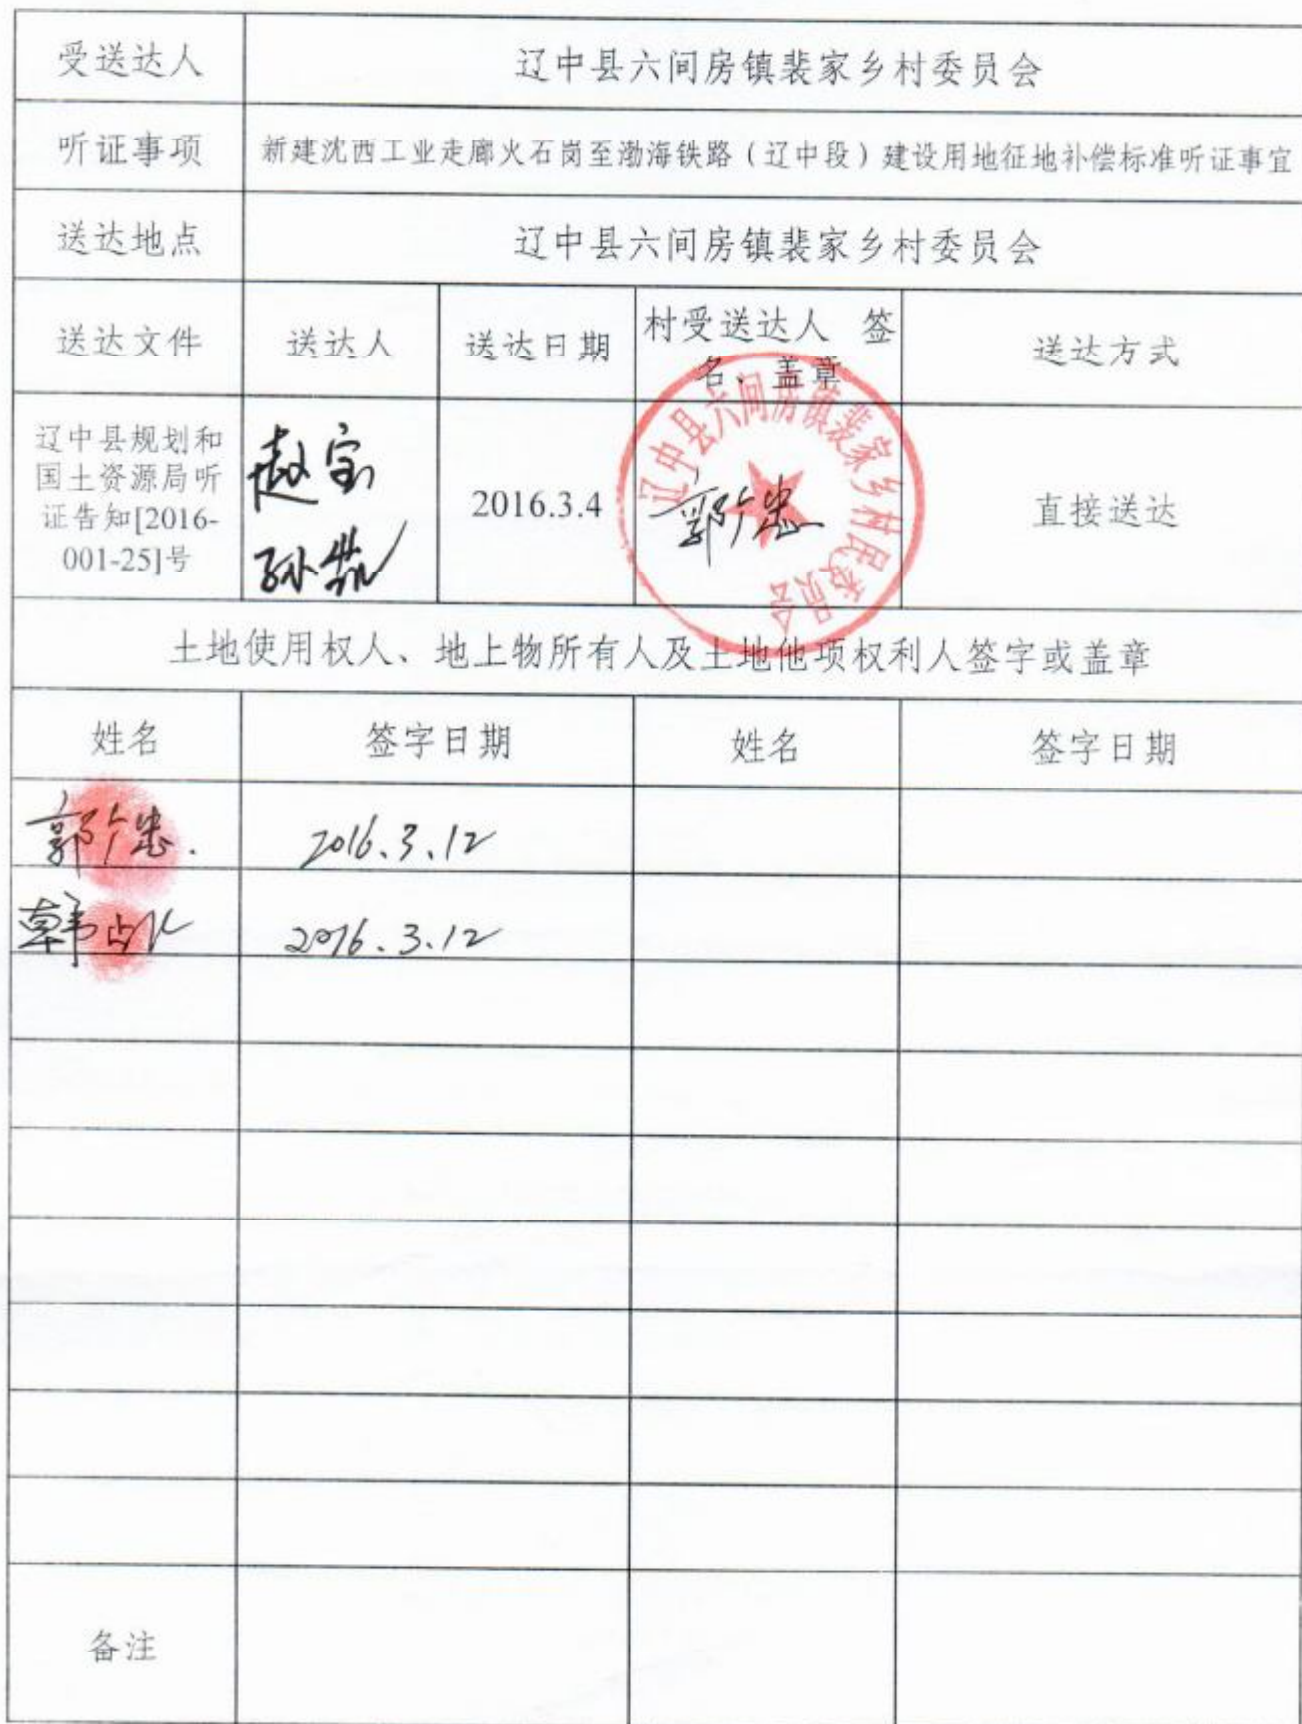 受送达人
辽中县六间房镇裴家乡村委员会
听证事项
新建沈西工业走廊火石岗至渤海铁路（辽中段）建设用地征地补偿标准听证事宜
送达地点
辽中县六间房镇裴家乡村委员会
送达文件
送达人
送达日期
村受送达人 签
名、盖章
送达方式
辽中县规划和
国土资源局听
证告知[2016-
001-25]号
赵宝
孙凯
2016.3.4
辽中县六间房镇裴家乡村民委员会
郭广忠
直接送达
土地使用权人、地上物所有人及土地他项权利人签字或盖章
姓名
签字日期
姓名
签字日期
郭广忠.
2016.3.12
韩占
2016.3.12
备注